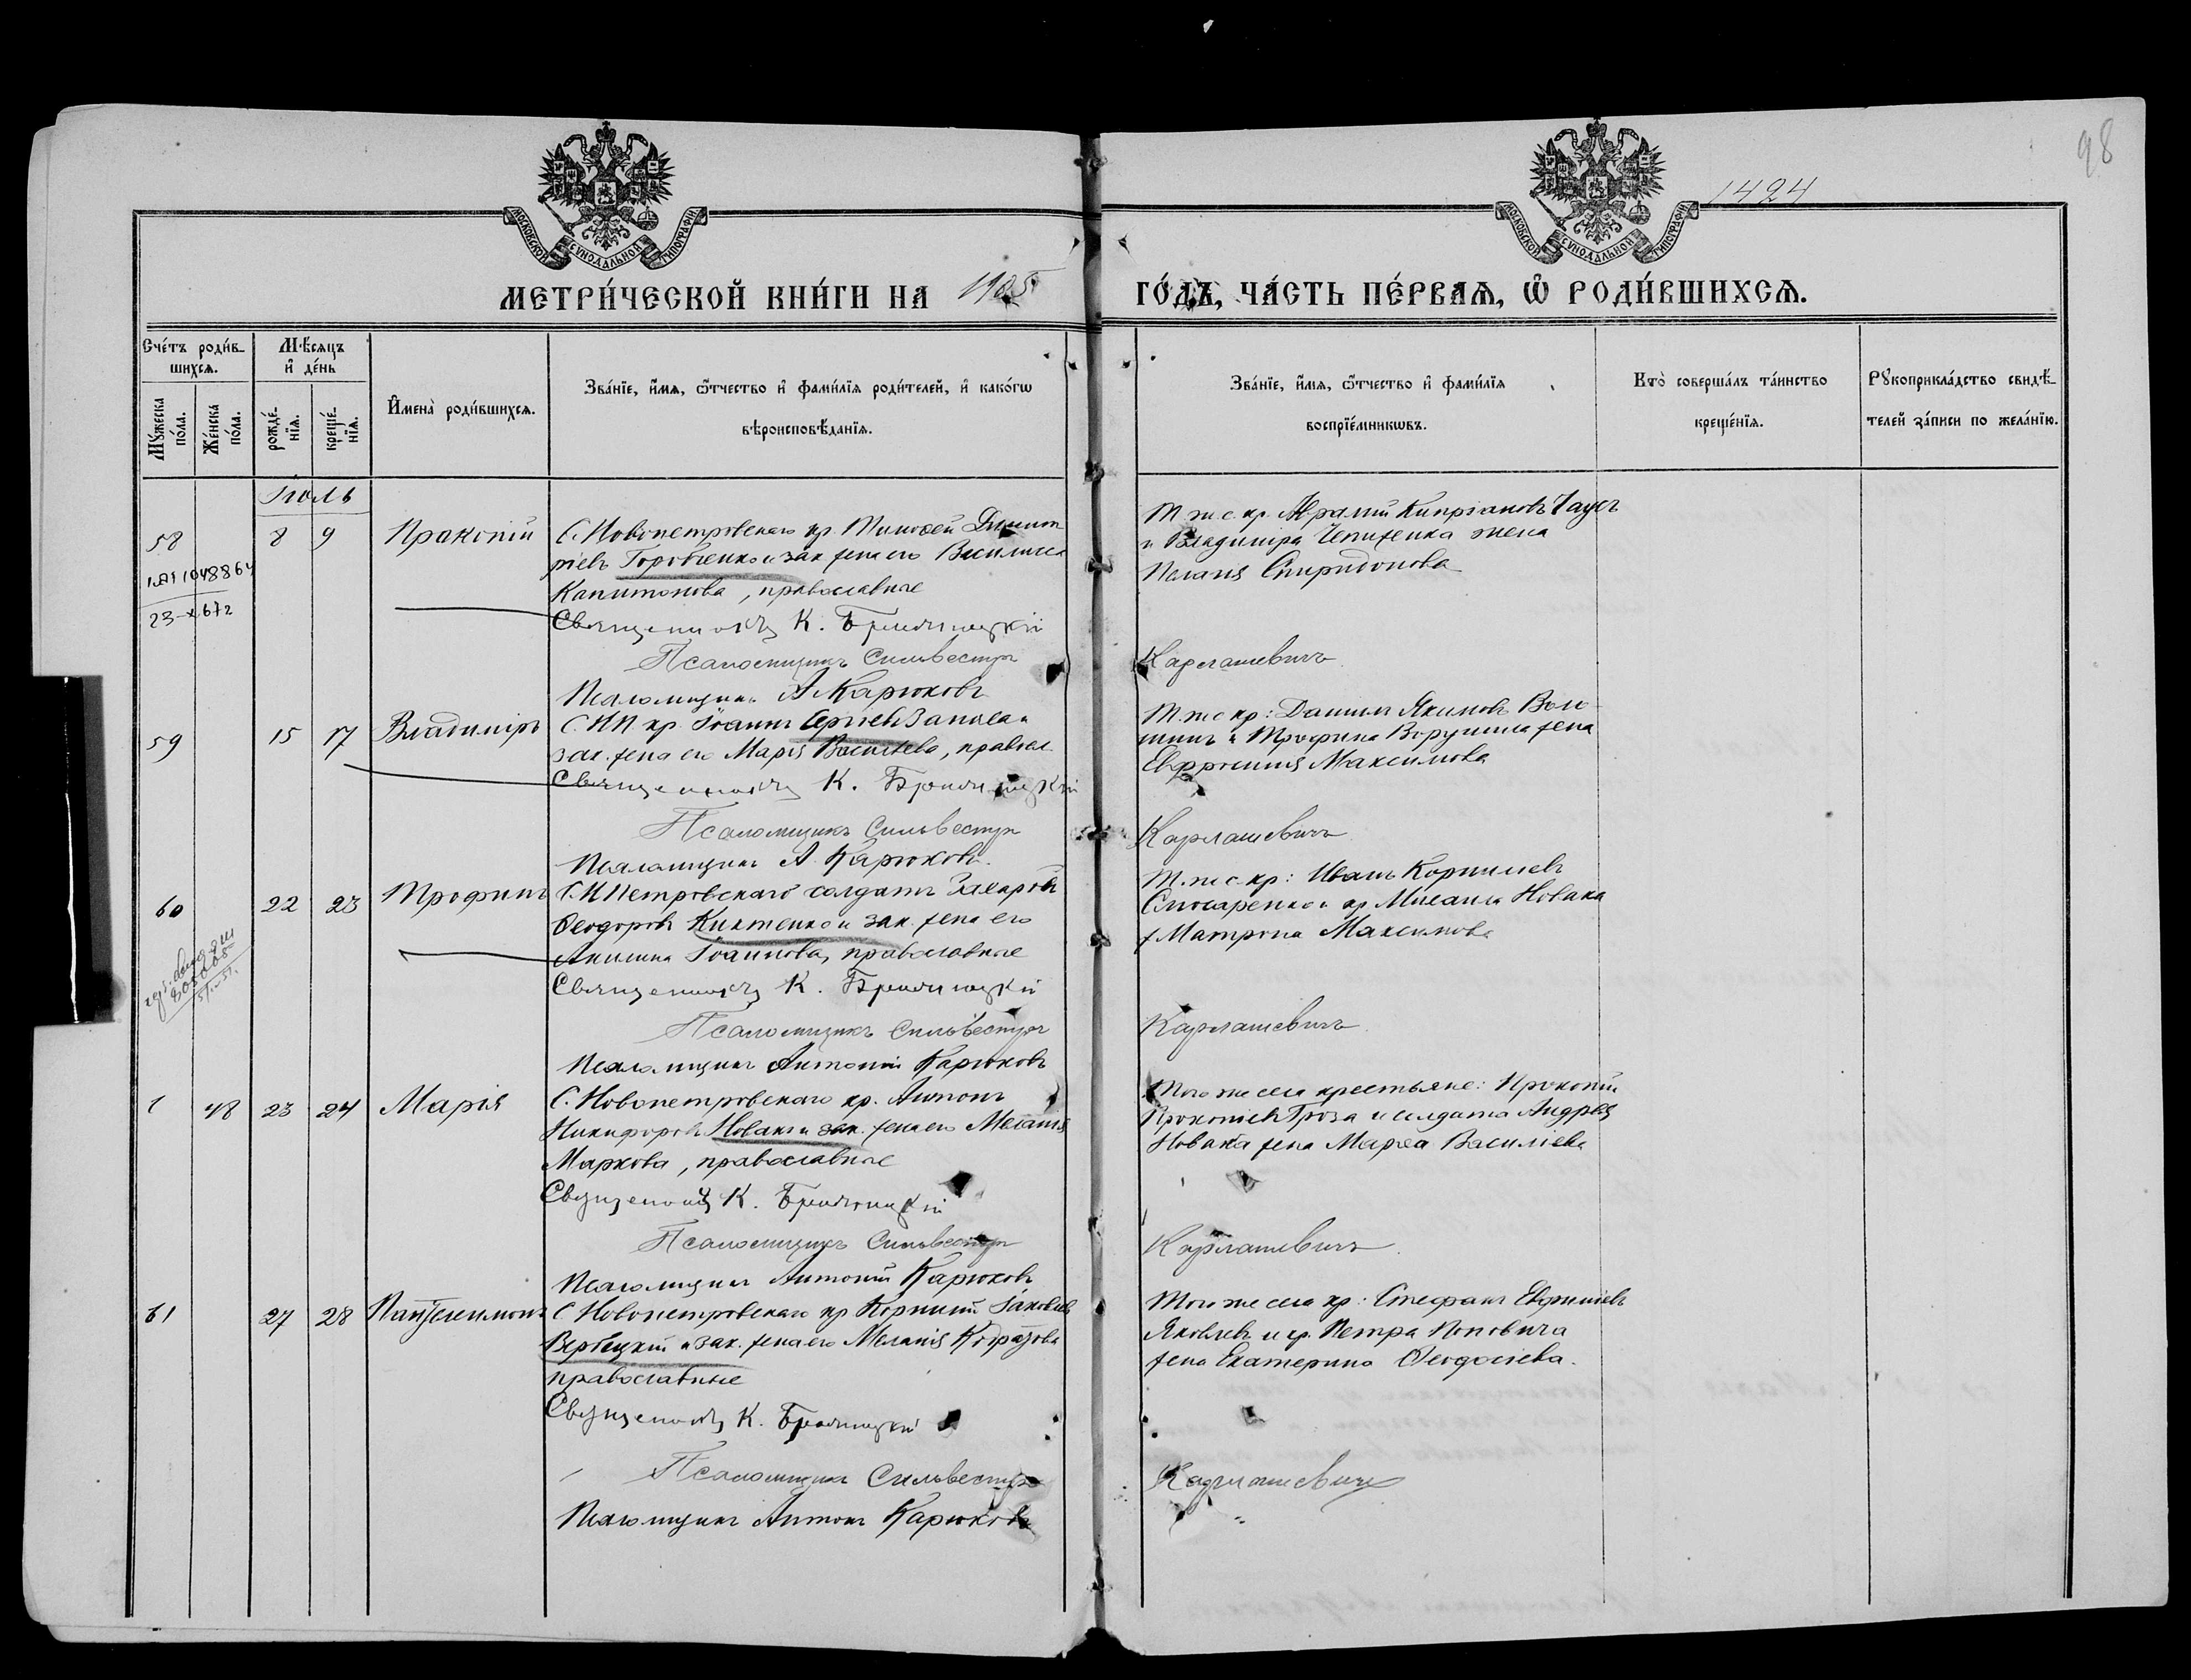 98
1424
МОСКОВСКОЙ СѴНОДАЛЬНОЙ ТИПОГРАФІИ
МОСКОВСКОЙ СѴНОДАЛЬНОЙ ТИПОГРАФІИ
МЕТРИ́ЧЕСКОЙ КНИ́ГИ НА 1905 ГО́ДЪ, ЧА́СТЬ ПЕ́РВАѦ, Ѡ҆ РОДИ́ВШИХСѦ.
Сче́тъ роди́в-
шихсѧ.
Мꙋ́жеска по́ла.
Же́нска по́ла.
Мѣ́сѧцъ и҆ де́нь
рожде́-
нїѧ.
креще́-
нїѧ.
И҆мена̀ роди́вшихсѧ.
Зва́нїе, и҆́мѧ, ѻ҆́тчество и҆ фами́лїѧ роди́телей, и҆ како́гѡ
вѣроисповѣ́данїѧ.
Зва́нїе, и҆́мѧ, ѻ҆́тчество и҆ фами́лїѧ
воспрїе́мникѡвъ.
Кто̀ соверша́лъ та́инство
креще́нїѧ.
Рꙋкоприкла́дство свидѣ́-
телей за́писи по жела́нїю.
Іюль
58 8 9 Прокопій
С. Новопетровскаго кр. Тимоѳей Димит
ріевъ Горовенко и зак жена его Василиса
Капитонова, православные
Т. же с. кр. Кипріановъ
и Владиміра Чепиженка жена
Пелагія Спиридонова
1048864
23-X672
Священникъ К.
Псаломщикъ Сильвестръ Карлашевичъ
Псаломщикъ А Карюковъ
59 15 17 Владиміръ
С. НП. кр. Іоаннъ Сергіевъ и
зак. жена его Марія Васильева, правосл.
Т. же с кр: Даніилъ Якимовъ Воло
шинъ и Трофима жена
Евфросинія Максимова
Священникъ К.
Псаломщикъ Сильвестръ Карлашевичъ
Псаломщикъ А. Карюковъ.
60 22 23 Трофимъ
С. НПетровскаго солдатъ Захарій
Ѳеодоровъ Киктенко и зак. жена его
Акилина Іоаннова, православные
Т. же с. кр: Иванъ Корниліевъ
Слюсаренко и кр Михаила Новака
ж Матрона Максимова
Священникъ К.
Псаломщикъ Сильвестръ Карлашевичъ
Псаломщикъ Антоній Карюковъ
48 23 24 Марія
С. Новопетровскаго кр. Антонъ
Никифоровъ Новакъ и зак. жена его Меланія
Маркова, православные
Того же села крестьяне: Прокопій
Прокопіевъ Гроза и солдата Андрея
Новака жена Марѳа Василіева
Священникъ К.
Псаломщикъ Сильвестръ Карлашевичъ
Псаломщикъ Антоній Карюковъ
61 27 28 Пантелеимонъ
С Новопетровскаго кр Корнилій Іаковлевъ
Вербецкій и зак. жена его Меланія Кодратова
православные
Того же села кр: Стефанъ Евфиміевъ
Яковлевъ и кр. Петра Поповича
жена Екатерина Ѳеодосіева.
Священникъ К.
Псаломщикъ Сильвестръ Карлашевичъ
Псаломщикъ Антонъ Карюковъ